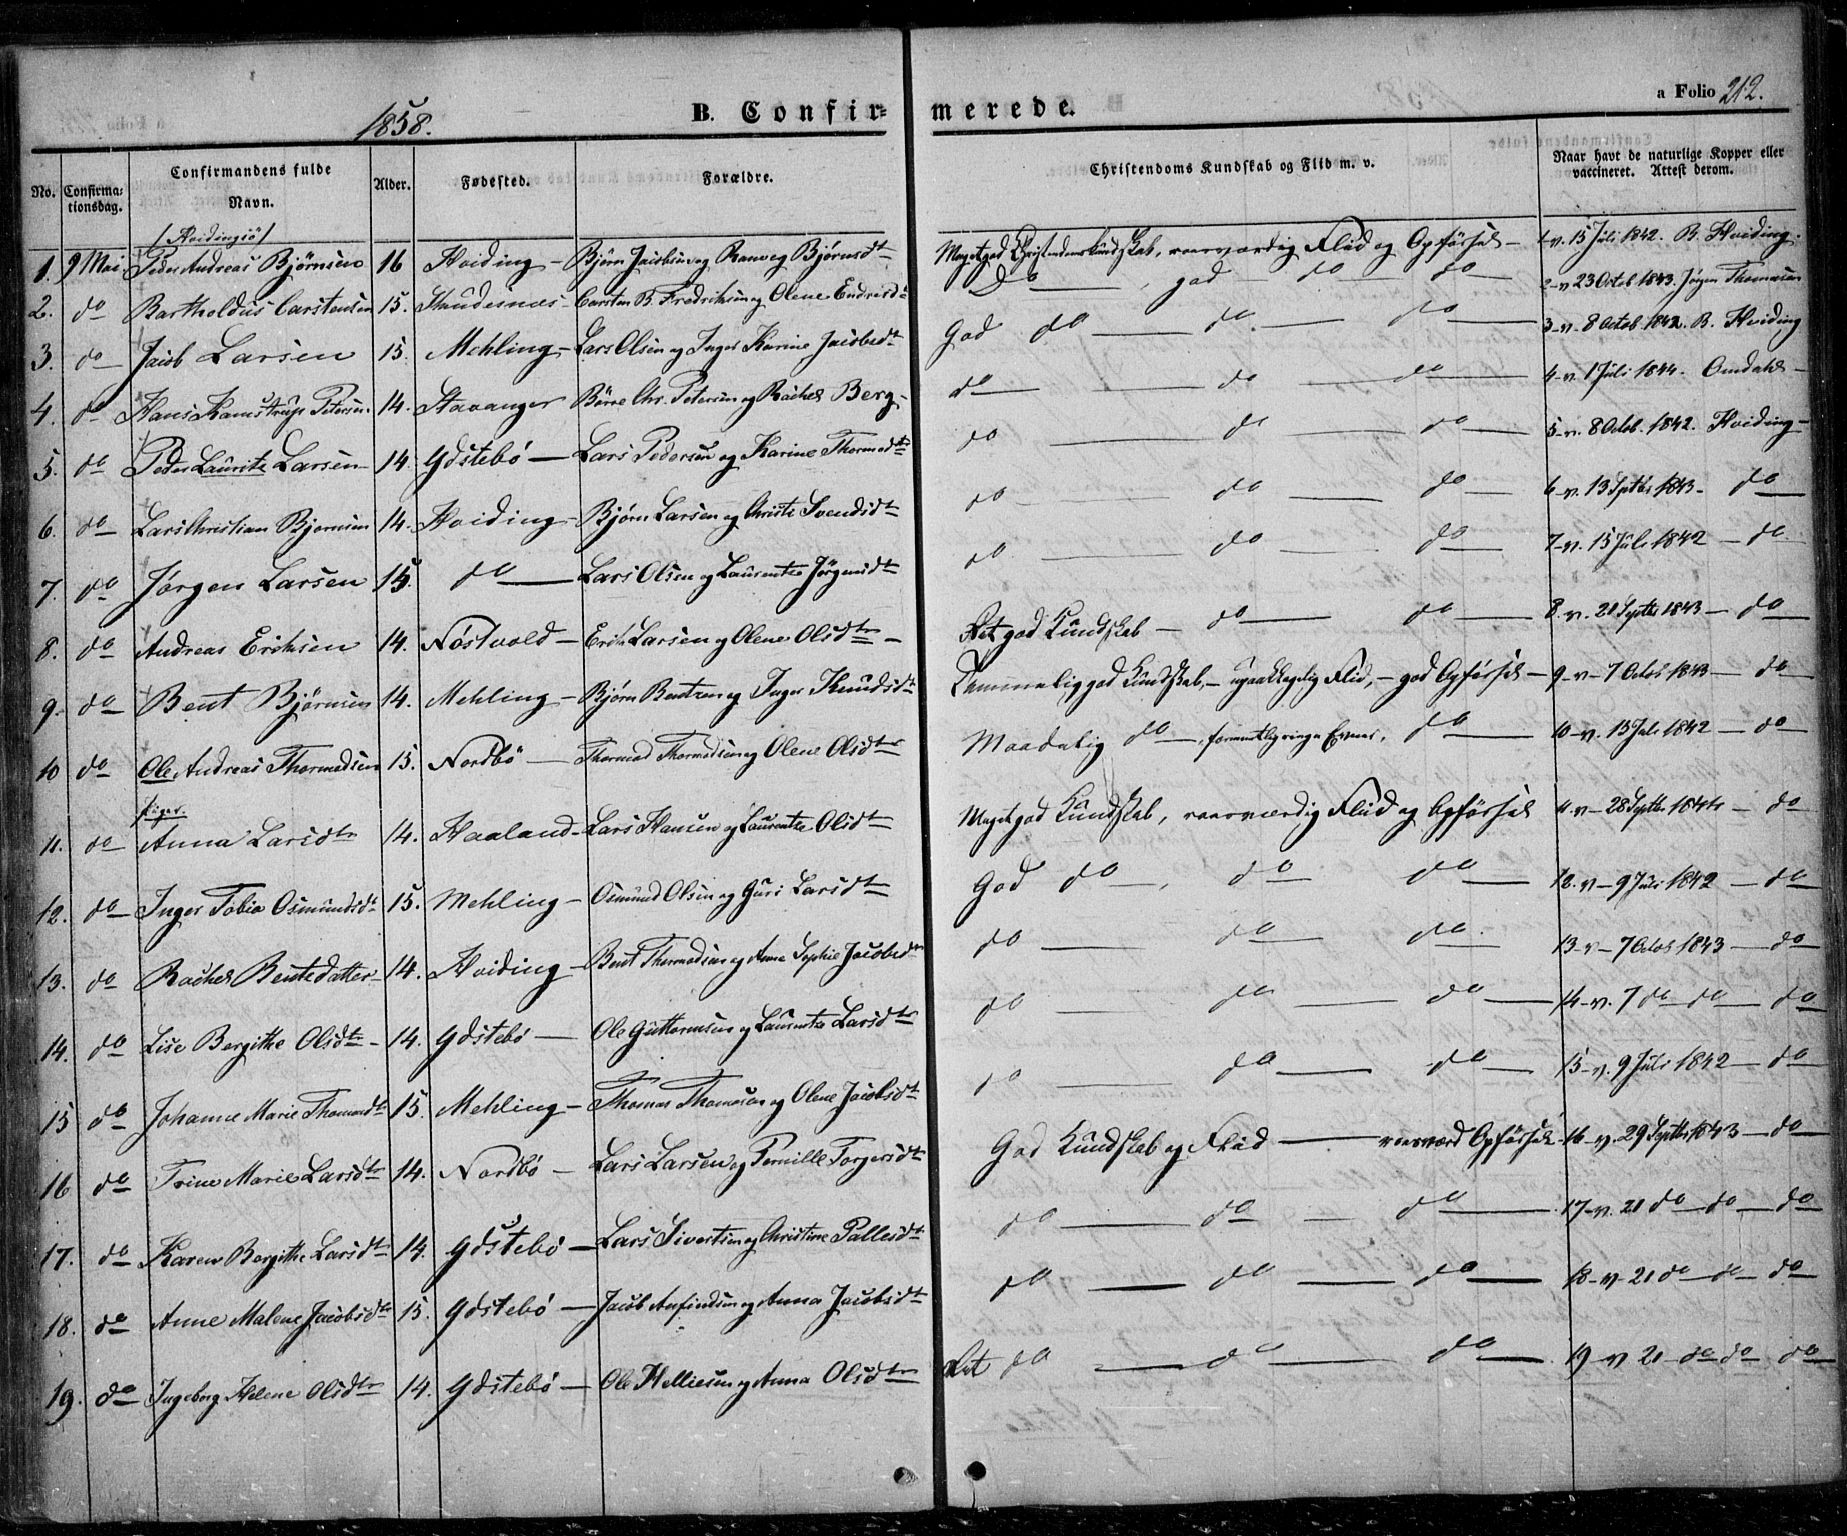 1858. B. Confirmerede. a Folio 212.
No. Confirmationsdag. Confirmandens fulde Navn. Alder. Fødested. Forældre. Christendoms Kundskab og Flid m. v. Naar havt de naturlige Kopper eller vaccineret. Attest derom.
(Hvidingsö)
1. 9 Mai Peder Andreas Bjørnsen 16 Hviding - Björn Jacobsen og Ranveg Bjørnsdtr Meget god Christendomskundskab, roesværdig Flid og Opförsel - 1-v. 15 Juli 1842. B. Hviding.
2. do Bartholdus Carstensen 15. Skudesnæs - Carsten B. Fredrichsen og Olene Endresdtr Do - , god - do - do - 2-v 23 Octob 1843. Jörgen Thomasen
3. do - Jacob Larsen 15. Mehling - Lars Olsen og Inger Karine Jacobsdtr God do - do. - do - 3-v. 8 Octob. 1842. B. Hviding
4. do - Hans Kamstrup Petersen 14. Stavanger Börre Chr. Petersen og Rachel Berg - do - do - do - 4-v. 1 Juli 1844. Omdahl -
5. do Peder Lauritz Larsen 14. Ydstebö - Lars Pedersen og Karine Thormodsdtr do - do - do - 5-v. 8 Octob. 1842. Hviding -
6. do - Lars Christian Bjørnsen 14. Hviding - Bjørn Larsen og Christi Svendsdtr do - do - do - 6-v. 13 Septbr 1843 - do
7. do Jørgen Larsen 15. do - Lars Olsen og Laurentze Jørgensdtr do - do - do - 7-v. 15 Juli 1842 - do
8. do Andreas Erichsen 14. Nöstvold - Erich Larsen og Olene Olsdtr - Ret god Kundskab - do - do - 8. v. 21 Septbr 1843 - do
9. do Bent Bjørnsen 14. Mehling - Bjørn Bentsen og Inger Knudsdtr Temmelig god Kundskab, - upaaklagelig Flid, - god Opförsel - 9-v- 7 Octob 1843 - do
10 do Ole Andreas Thormodsen 15. Nordbö - Thormod Thormodsen og Olene Olsdtr Maadelig do -, formentlig ringe Evner, do - 10-v. 15 Juli 1842 - do
Piger.
11. do Anna Larsdtr 14. Haaland - Lars Hansen og Laurentze Olsdtr Meget god Kundskab, roesværdig Flid og Opförsel 11. v - 28 Septbr 1844 - do
12. do - Inger Tobia Osmundsdtr 15. Mehling - Osmund Olsen og Guri Larsdtr God do -, do - do - 12. v - 9 Juli 1842 - do
13. do Rachel Bentsdatter - 14. Hviding - Bent Thormodsen og Anne Sophie Jacobsdtr do - do - do. - 13-v - 7 Octob 1843 - do
14. do Lise Bergithe Olsdtr - 14. Ydstebö - Ole Guttormsen og Laurentze Larsdtr do - do - do - 14-v. 7 do do - do
15 do Johanne Marie Thomasdtr 15. Mehling - Thomas Thomasen og Olene Jacobsdtr do - do - do - 15-v. 9 Juli 1842 - do
16 do Trine Marie Larsdtr 14. Nordbö - Lars Larsen og Pernille Torgersdtr God Kundskab og Flid - roesværd Opförsel - 16-v. 29 Septbr 1843 - do
17. do Karen Bergithe Larsdtr 14. Ydstebö - Lars Sivertsen og Christine Pallesdtr do - do - do - 17-v. 21 do - do - do
18. do Anne Malene Jacobsdtr 15. Ydstebö - Jacob Anfindsen og Anna Jacobsdtr do - do - do - 18-v-21 do - do - do
19. do Ingeborg Helene Olsdtr 14. Ydstebö - Ole Helliesen og Anna Olsdtr Ret do - do - do - 19-v 21 - do do do